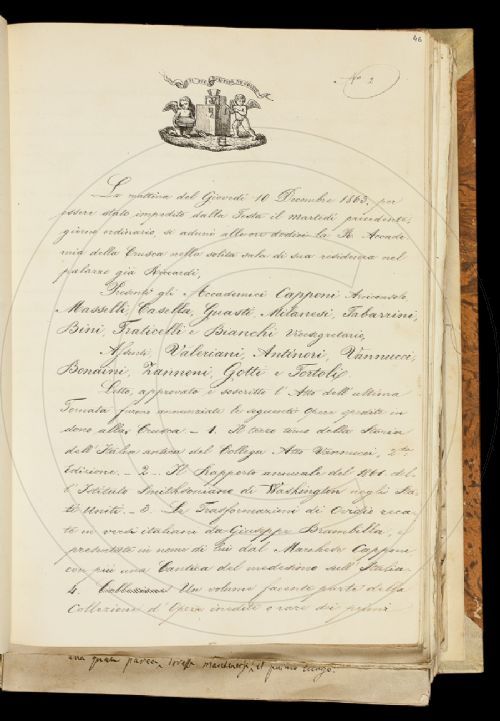 46
Nº 2
La mattina del Giovedì 10 Dicembre 1863, per
essere stato impedito dalla Festa il martedì precedente,
giorno ordinario, si adunò alle ore dodici la R. Accade-
mia della Crusca nella solita sala di sua residenza nel
palazzo già Riccardi,
Presenti gli Accademici Capponi Arciconsolo
Masselli, Casella, Guasti, Milanesi, Tabarrini,
Bini, Fraticelli e Bianchi Vicesegretario,
Assenti, Valeriani, Antinori, Vannucci,
Bonaini, Zannoni, Gotti e Tortoli,
Letto, approvato e soscritto l'Atto dell'ultima
Tornata furono annunziate le seguenti Opere spedite in
dono alla Crusca. - 1. Il terzo tomo della Storia
dell'Italia antica del Collega Atto Vannucci, 2da
Edizione. - 2. - Il Rapporto annuale del 1861 del-
l'Istituto Smithsoniano di Washington negli Sta-
ti Uniti. - 3. Le Trasformazioni di Ovidio reca-
te in versi italiani da Giuseppe Brambilla, e
presentate in nome di Lui dal Marchese Capponi
con più una Cantica del medesimo sull'Italia.
4. Un volume facente parte della
Collezione d'Opere inedite o rare dei primi
una gran parte, il primo luogo.